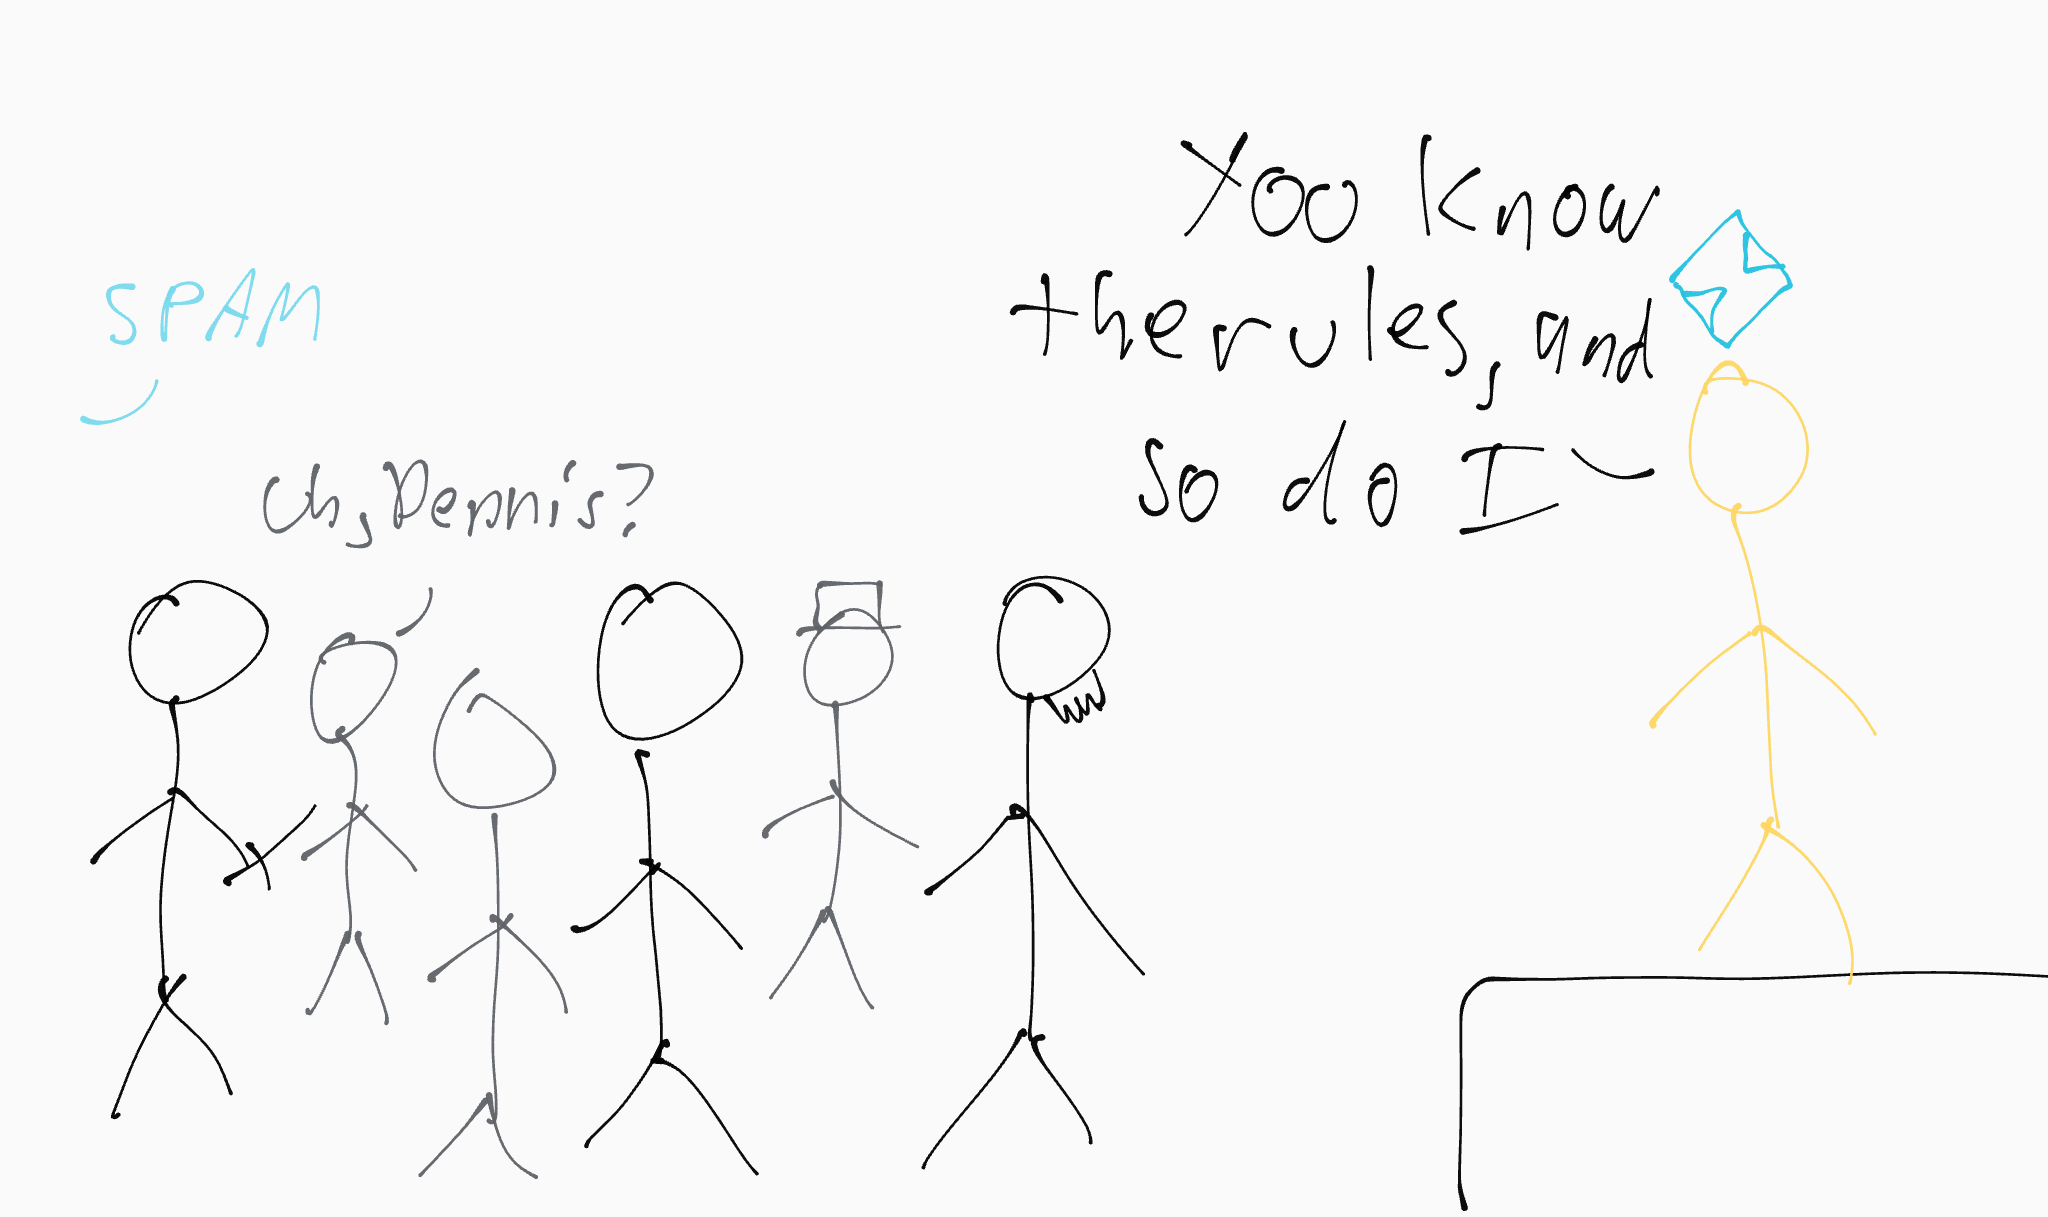 SPAM
Uh, Dennis?
You know
the rules, and
so do I